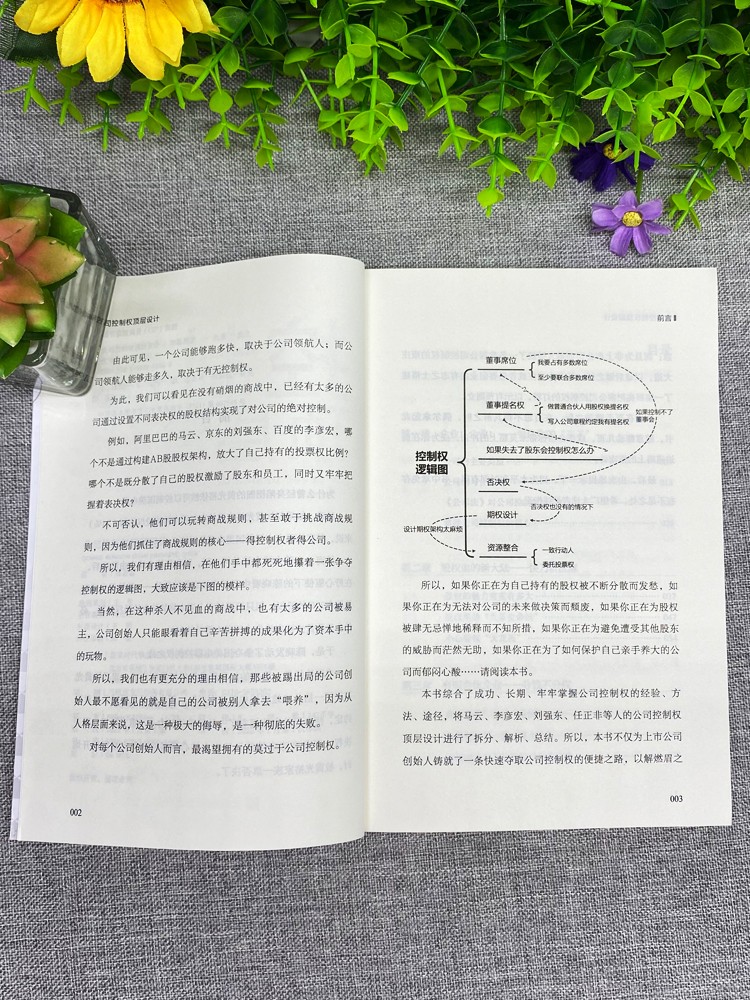 司控制权顶层设计
由此可见，一个公司能够跑多快，取决于公司领航人；而公
司领航人能够走多久，取决于有无控制权。
为此，我们可以看见在没有硝烟的商战中，已经有太多的公
司通过设置不同表决权的股权结构实现了对公司的绝对控制。
例如，阿里巴巴的马云、京东的刘强东、百度的李彦宏，哪
个不是通过构建AB股股权架构，放大了自己持有的投票权比例？
哪个不是既分散了自己的股权激励了股东和员工，同时又牢牢把
握着表决权？
不可否认，他们可以玩转商战规则，甚至敢于挑战商战规
则，因为他们抓住了商战规则的核心——得控制权者得公司。
所以，我们有理由相信，在他们手中都死死地攥着一张争夺
控制权的逻辑图，大致应该是下图的模样。
当然，在这种杀人不见血的商战中，也有太多的公司被易
主，公司创始人只能眼看着自己辛苦拼搏的成果化为了资本手中
的玩物。
所以，我们也有更充分的理由相信，那些被踢出局的公司创
始人最不愿看见的就是自己的公司被别人拿去“喂养”，因为从
人格层面来说，这是一种极大的侮辱，是一种彻底的失败。
对每个公司创始人而言，最渴望拥有的莫过于公司控制权。
002
前言
控制权
逻辑图
董事席位
我要占有多数席位
至少要联合多数席位
董事提名权
做普通合伙人用股权换提名权
写入公司章程约定我有提名权
如果控制不了
董事会
如果失去了股东会控制权怎么办
否决权
否决权也没有的情况下
期权设计
设计期权架构太麻烦
资源整合
一致行动人
委托投票权
所以，如果你正在为自己持有的股权被不断分散而发愁，如
果你正在为无法对公司的未来做决策而颓废，如果你正在为股权
被肆无忌惮地稀释而不知所措，如果你正在为避免遭受其他股东
的威胁而茫然无助，如果你正在为了如何保护自己亲手养大的公
司而郁闷心酸……请阅读本书。
本书综合了成功、长期、牢牢掌握公司控制权的经验、方
法、途径，将马云、李彦宏、刘强东、任正非等人的公司控制权
顶层设计进行了拆分、解析、总结。所以，本书不仅为上市公司
创始人铸就了一条快速夺取公司控制权的便捷之路，以解燃眉之
003